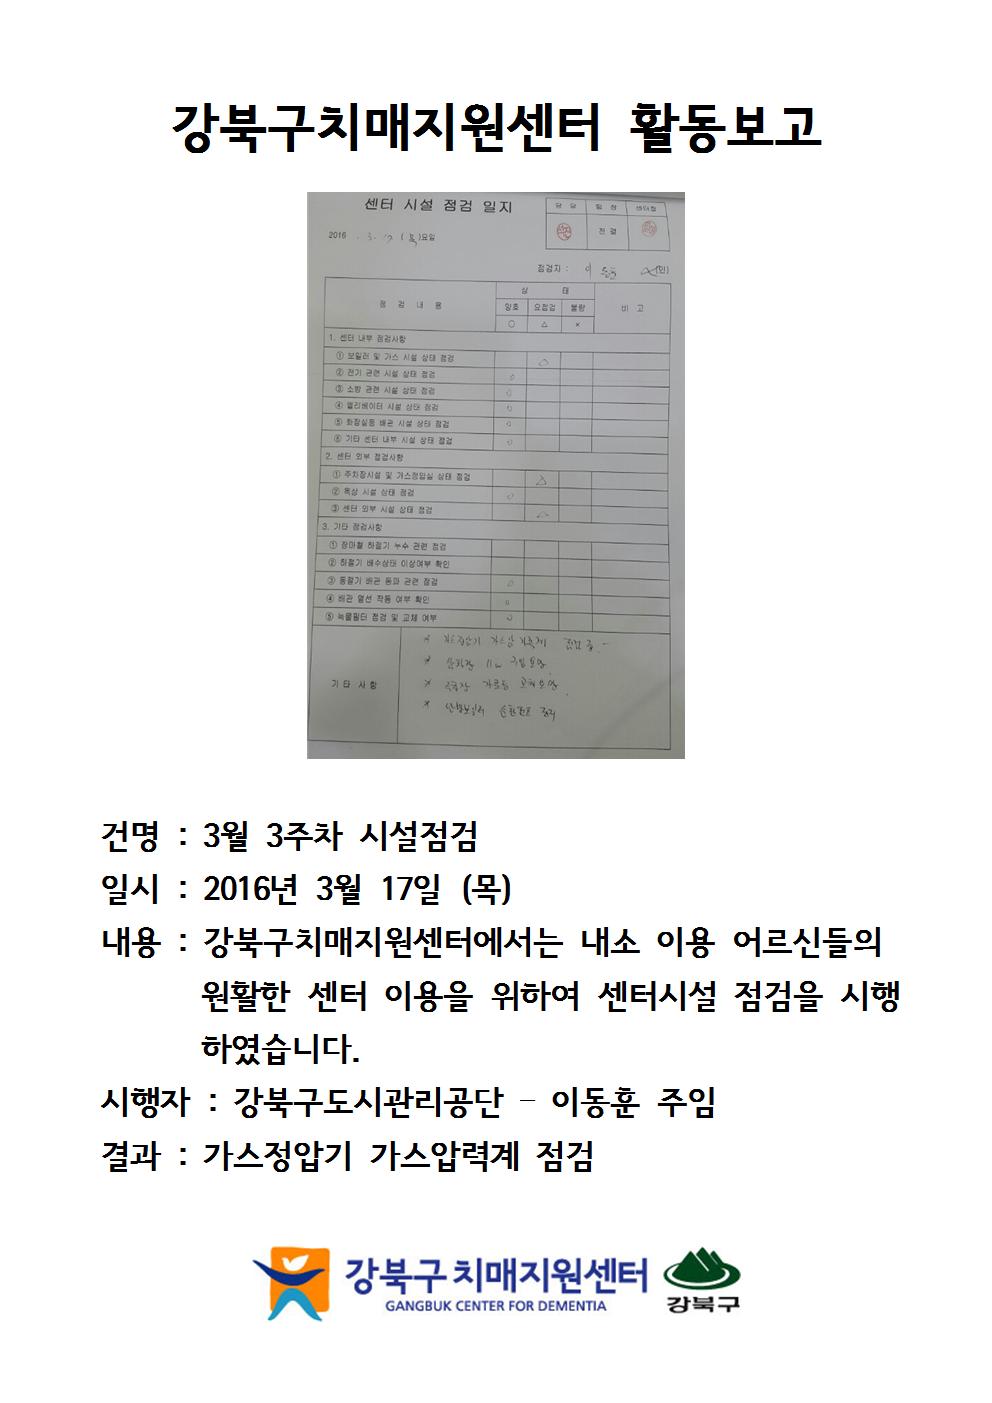 강북구치매지원센터 활동보고
센터 시설 점검 일지
담 당 팀 장 센터장
전 결
2016 . 3. 17 ( 목 )요일
점검자 : 이 (인)
점 검 내 용
상 태
비 고
양호 요점검 불량
○ △ ×
1. 센터 내부 점검사항
① 보일러 및 가스 시설 상태 점검 △
② 전기 관련 시설 상태 점검 ○
③ 소방 관련 시설 상태 점검 ○
④ 엘리베이터 시설 상태 점검 ○
⑤ 화장실등 배관 시설 상태 점검 ○
⑥ 기타 센터 내부 시설 상태 점검 ○
2. 센터 외부 점검사항
① 주차장시설 및 가스정압실 상태 점검 △
② 옥상 시설 상태 점검 ○
③ 센터 외부 시설 상태 점검 △
3. 기타 점검사항
① 장마철 하절기 누수 관련 점검
② 하절기 배수상태 이상여부 확인
③ 동절기 배관 동파 관련 점검 ○
④ 배관 열선 작동 여부 확인 ○
⑤ 녹물필터 점검 및 교체 여부 ○
기 타 사 항
건명 : 3월 3주차 시설점검
일시 : 2016년 3월 17일 (목)
내용 : 강북구치매지원센터에서는 내소 이용 어르신들의
원활한 센터 이용을 위하여 센터시설 점검을 시행
하였습니다.
시행자 : 강북구도시관리공단 - 이동훈 주임
결과 : 가스정압기 가스압력계 점검
강북구치매지원센터
GANGBUK CENTER FOR DEMENTIA
강북구